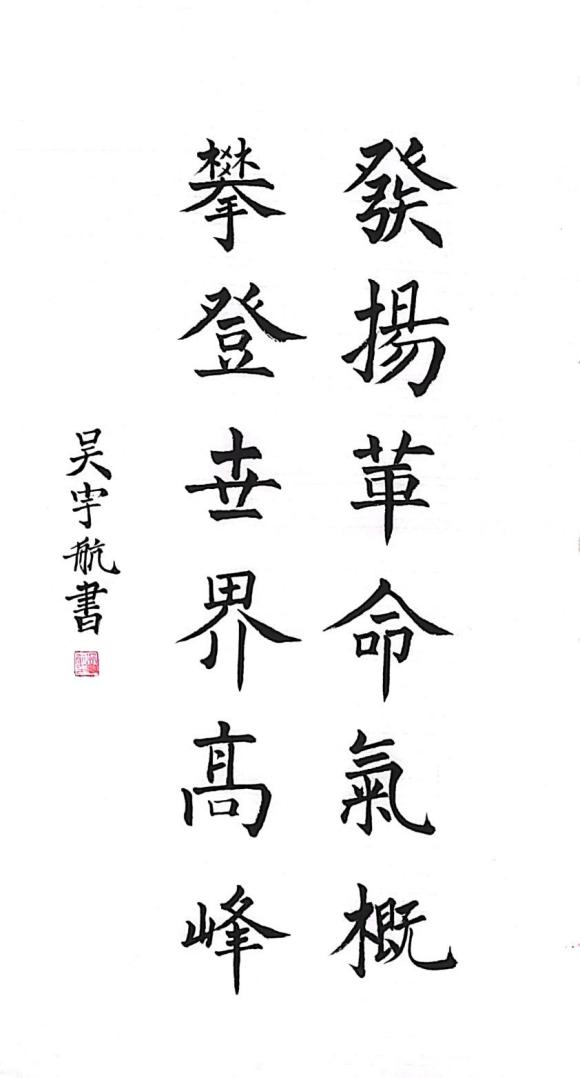 發揚革命氣概
攀登世界高峰
吴宇航書